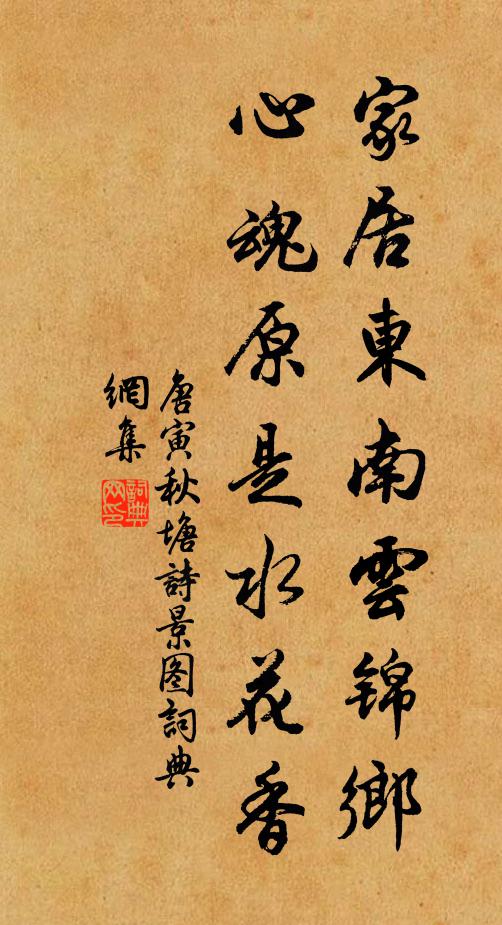 家居東南雲锦鄉
心魂原是水花香
唐寅秋塘詩景图詞典
網集
詞典
网印